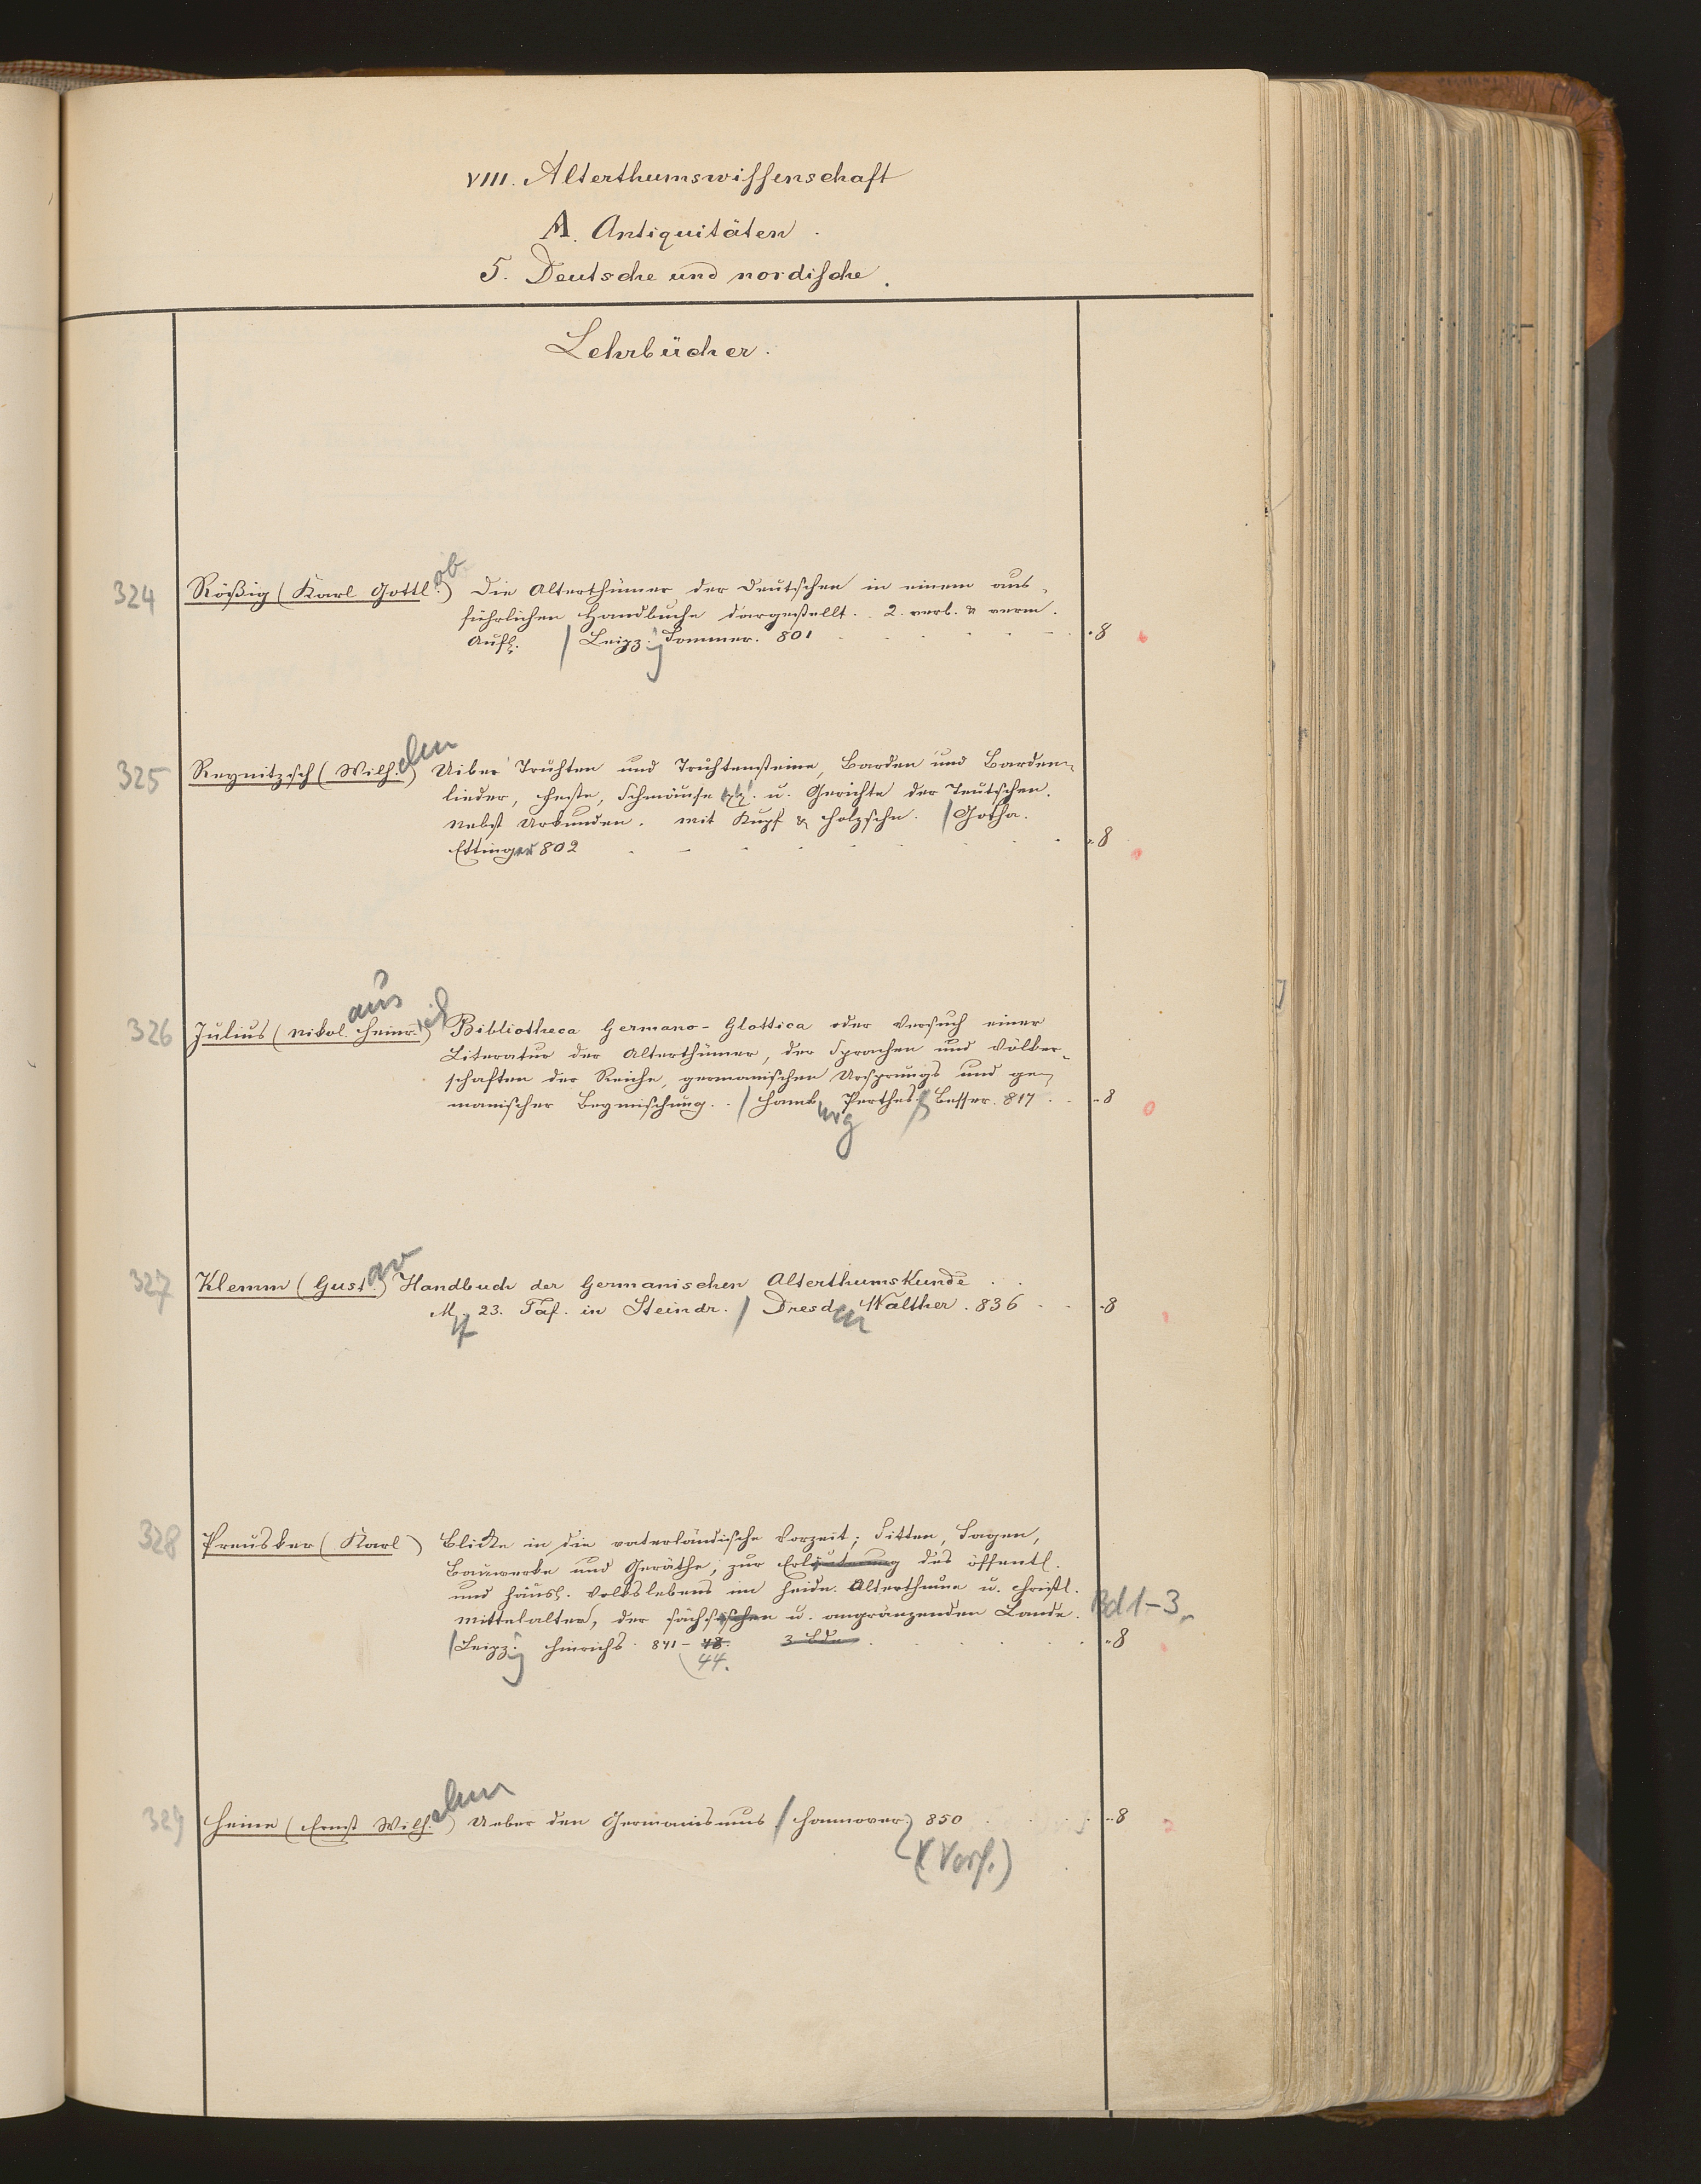 VIII. Alterthumswissenschaft
A. Antiquitäten.
5. Deutsche und nordische.
Lehrbücher.
324 Rößig (Karl Gottl.ob) Die Alterthümer der Deutschen in einem aus-
führlichen Handbuche dargestellt. 2. verb. & verm.
Aufl. / Leipz.ig Sommer. 801 8
325 Reynitzsch (Wilh.elm) Uiber Truhten und Truhtensteine, Barden und Barden-
lieder, Feste, Schmäuse u. Gerichte der Teutschen.
Nebst Urkunden. Mit Kupf & Holzschn. / Gotha.
Ettinger 802 8
326 Julius (Nikol.aus Heinr.ich) Bibliotheca Germano-Glottica oder Versuch einer
Literatur der Alterthümer, der Sprachen und Völker-
schaften der Reiche, germanischen Ursprungs und ger-
manischer Beymischung. / Hamburg Perthes & Besser. 817 8
327 Klemm (Gust.av) Handbuch der Germanischen Alterthumskunde
M. 23. Taf. in Steindr. / Dresden Walther. 836 8
328 Preusker (Karl) Blicke in die vaterländische Vorzeit; Sitten, Sagen,
Bauwerke und Geräthe, zur Erläuterung des öffentl.
und häusl. Volkslebens im heidn. Alterthume u. christl.
Mittelalter, der sächsischen u. angränzenden Lande. Bd 1-3.
/ Leipz.ig Hinrichs. 841-43. 3 Bde 8
44.
329 Heine (Ernst Wilh.elm) Ueber den Germanismus / Hannover. 850 8
(Verf.)